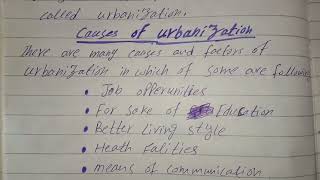 called urbanization.
Causes of urbanization
There are many causes and factors of
urbanization in which of some are following
• Job offerunities
• For sake of Education
• Better living style
• Heath Falities
• means of communication